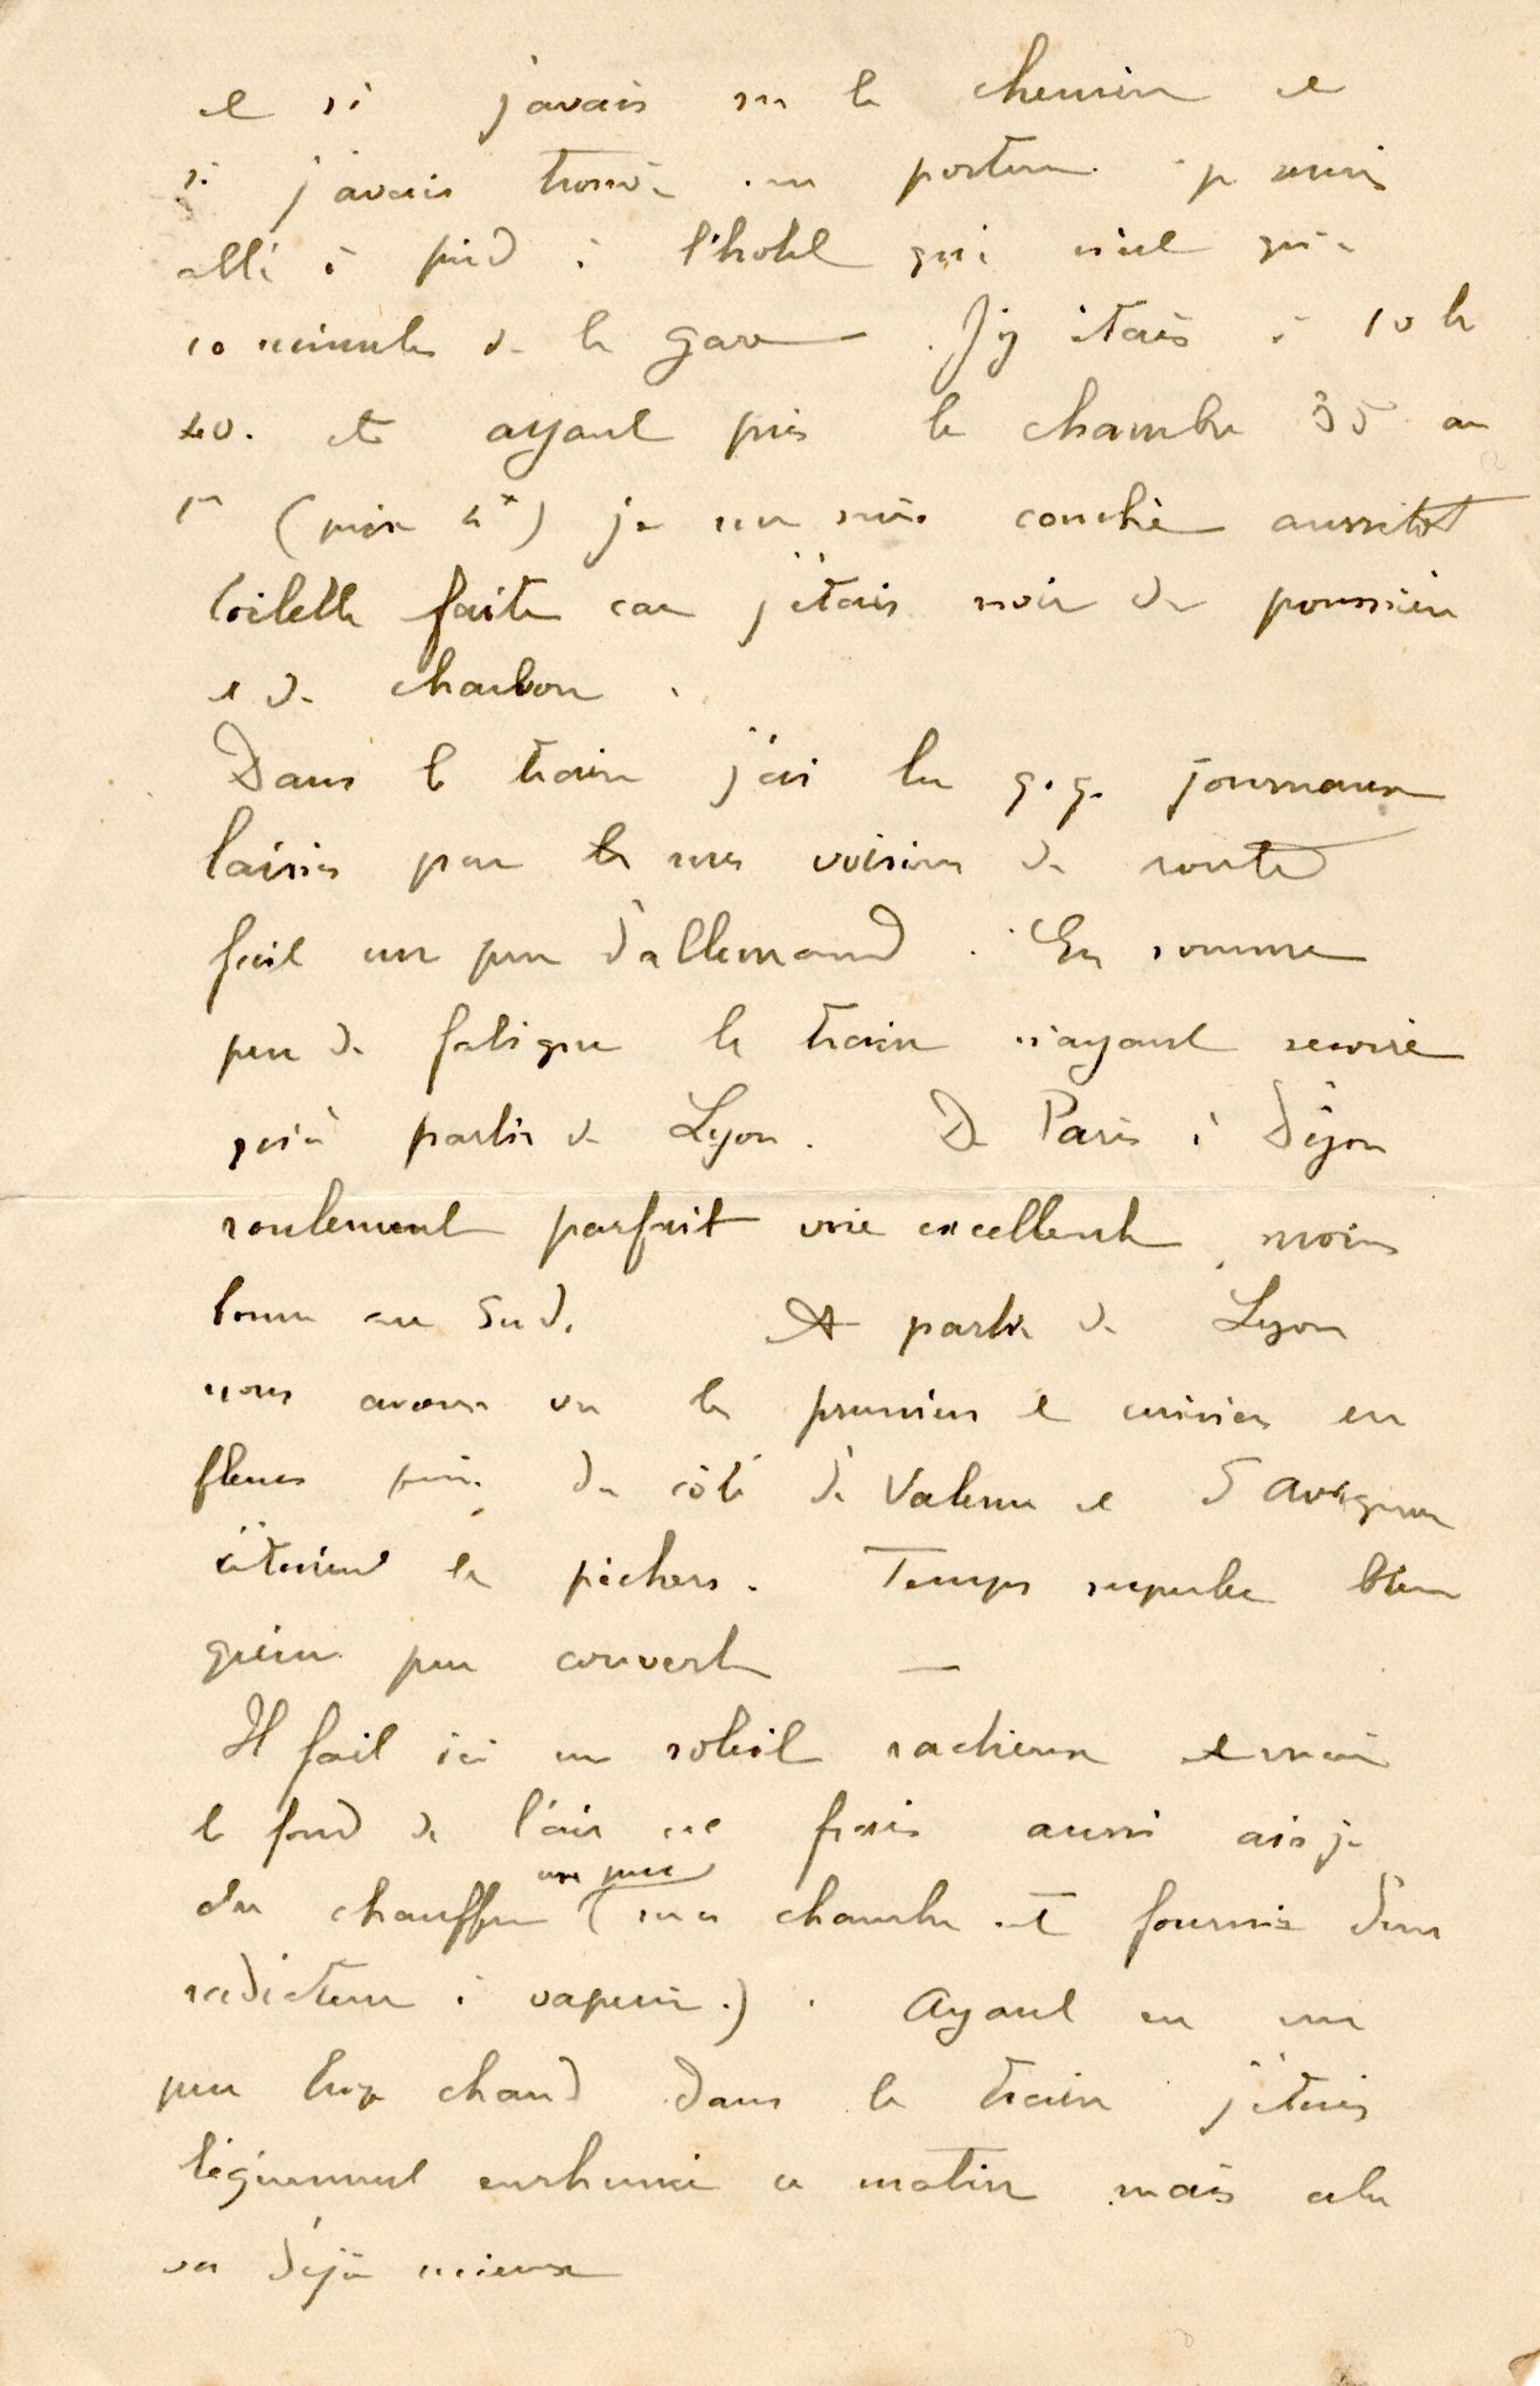 et si j'avais su le chemin et
si j'avais trouvé un porteur je serais
allé à pied à l'hotel qui n'est qu'à
10 minutes de la gare. J'y étais à 10 h
40. et ayant pris la chambre 35 au
1er (prix 4f) je me suis couché aussitot
toilette faite car j'étais noir de poussière
et de charbon.
Dans le train j'ai lu q.q. journaux
laissés par mes voisins de route
fait un peu d'allemand. En somme
peu de fatigue le train n'ayant secoué
qu'à partir de Lyon. De Paris à Dijon
roulement parfait voie excellente, moins
bonne au Sud. A partir de Lyon
nous avons vu les pruniers et cerisiers en
fleurs puis du côté de Valence et d'Avignon
c'étaient les pêchers. Temps superbe bien
qu'un peu couvert —
Il fait ici un soleil radieux mais
le fond de l'air est frais aussi ai-je
du chauffer un peu (ma chambre est fournie d'un
radiateur à vapeur.). Ayant eu un
peu trop chaud dans le train j'étais
légèrement enrhumé ce matin mais cela
va déjà mieux